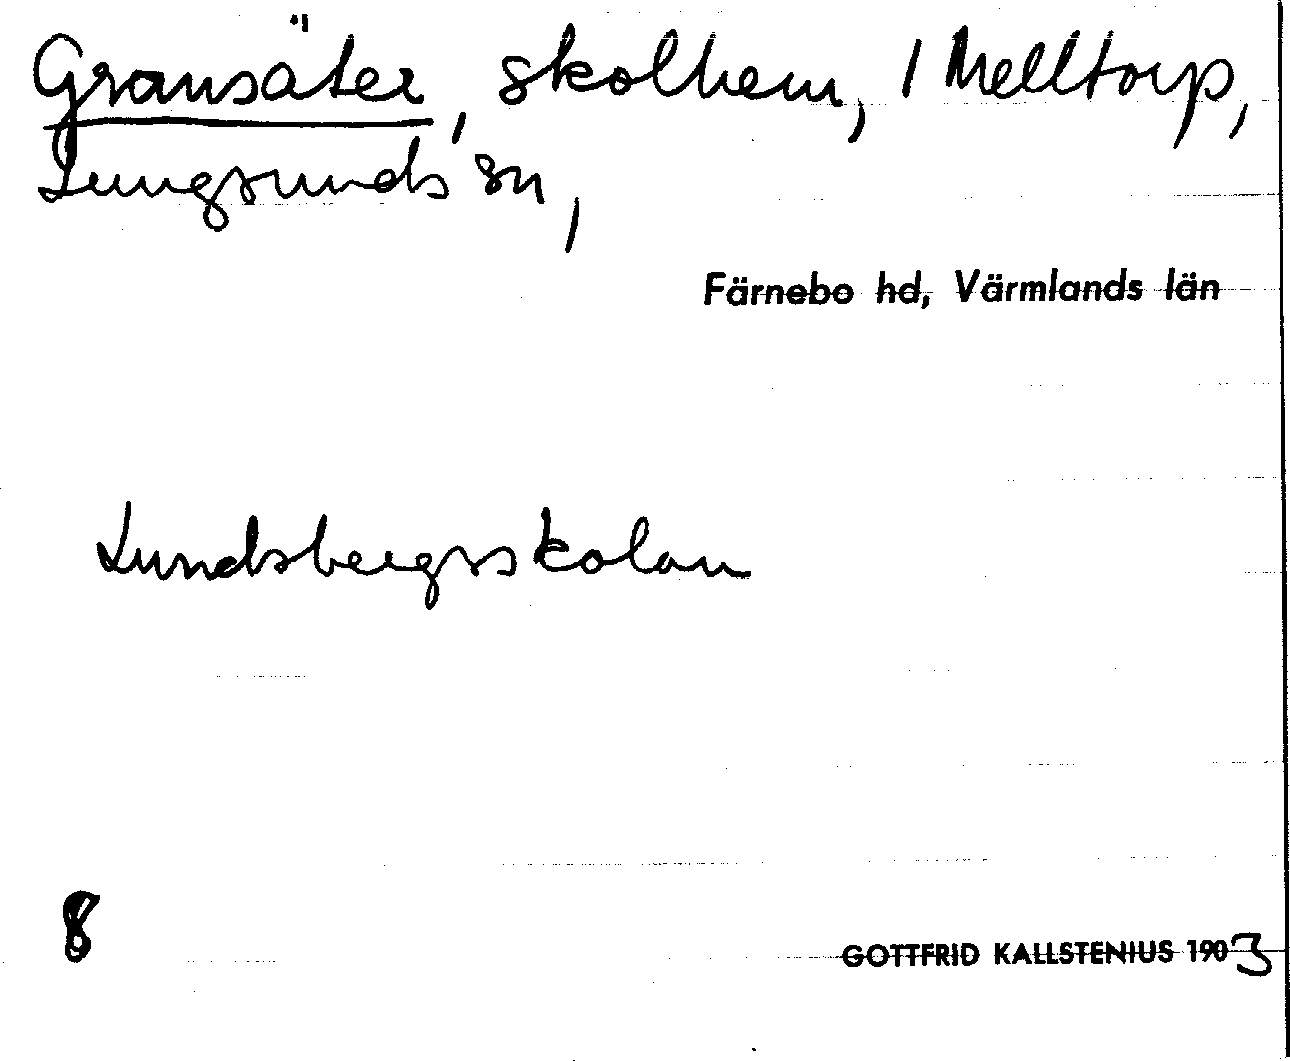 Gransäter, skolhem, 1 Melltorp,
Lungsunds sn,
Färnebo hd, Värmlands län
Lundsbergsskolan
8
GOTTFRID KALLSTENIUS 1903